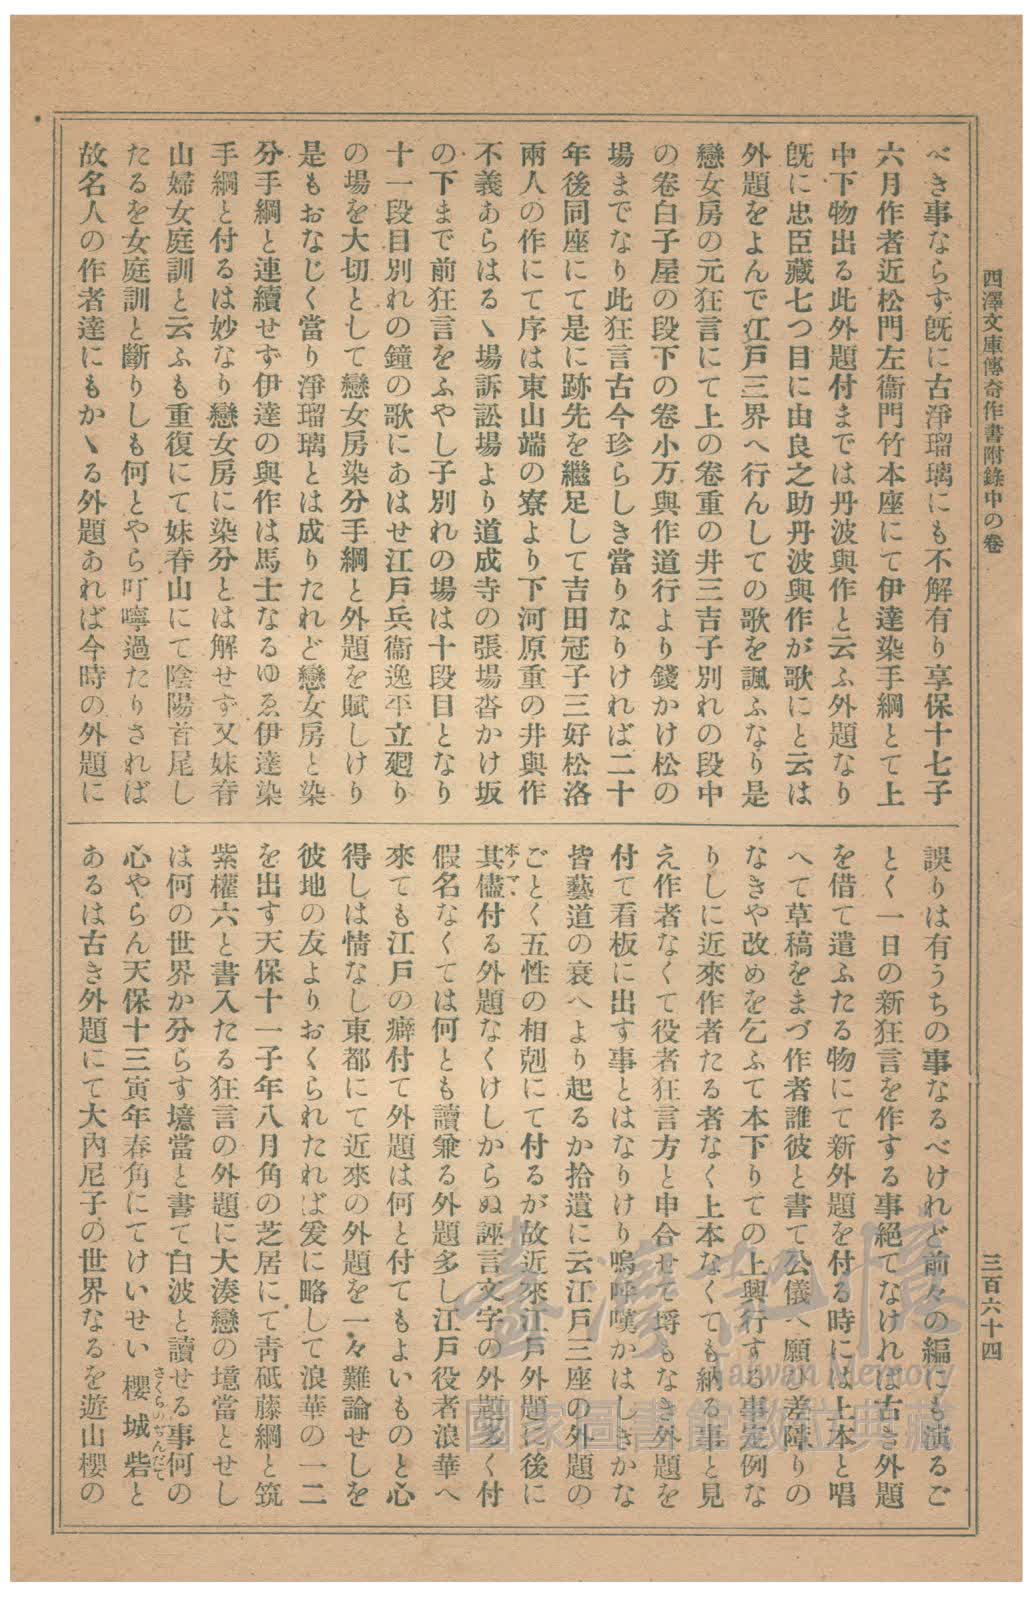 四澤文庫傳奇作書附錄中の卷
べき事ならず既に古淨瑠璃にも不解有り享保十七子
六月作者近松門左衞門竹本座にて伊達染手綱とて上
中下物出る此外題付までは丹波與作と云ふ外題なり
既に忠臣藏七つ目に由良之助丹波與作が歌にと云は
外題をよんで江戸三界へ行んしての歌を諷ふなり是
戀女房の元狂言にて上の卷重の井三吉子別れの段中
の卷白子屋の段下の卷小万與作道行より錢かけ松の
場までなり此狂言古今珍らしき當りなりければ二十
年後同座にて是に跡先を繼足して吉田冠子三好松洛
兩人の作にて序は東山端の寮より下河原重の井與作
不義あらはるヽ場訴訟場より道成寺の張場沓かけ坂
の下まで前狂言をふやし子別れの場は十段目となり
十一段目別れの鐘の歌にあはせ江戸兵衞逸平立廻り
の場を大切として戀女房染分手綱と外題を賦しけり
是もおなじく當り淨瑠璃とは成りたれど戀女房と染
分手綱と連續せず伊達の與作は馬士なるゆゑ伊達染
手綱と付るは妙なり戀女房に染分とは解せず又妹脊
山婦女庭訓と云ふも重復にて妹脊山にて陰陽首尾し
たるを女庭訓と斷りしも何とやら叮嚀過たりされば
故名人の作者達にもかヽる外題あれば今時の外題に
誤りは有うちの事なるべけれど前々の編にも演るご
とく一日の新狂言を作する事絕てなければ古き外題
を借て遣ふたる物にて新外題を付る時には上本と唱
へて草稿をまづ作者誰彼と書て公儀へ願ひ差障りの
なきや改めを乞ふて本下りての上興行する事定例な
りしに近來作者たる者なく上本なくても納る事と見
え作者なくて役者狂言方と申合せて埒もなき外題を
付て看板に出す事とはなりけり嗚呼嘆かはしきかな
皆藝道の衰へより起るか拾遺に云江戸三座の外題の
ごとく五性の相剋にて付るが故近來江戸外題に後に
本ノマヽ
其儘付る外題なくけしからぬ誣言文字の外題多く付
假名なくては何とも讀兼る外題多し江戸役者浪華へ
來ても江戸の癖付て外題は何と付てもよいものと心
得しは情なし東都にて近來の外題を一々難論せしを
彼地の友よりおくられたれば爰に略して浪華の一二
を出す天保十一子年八月角の芝居にて靑砥藤綱と筑
紫權六と書入たる狂言の外題に大湊戀の境當とせし
は何の世界か分らす境當と書て白波と讀せる事何の
心やらん天保十三寅年春角にてけいせい櫻城砦と
さくらのぢんだて
あるは古き外題にて大內尼子の世界なるを遊山櫻の
三百六十四
臺灣記憶
Taiwan Memory
國家圖書館數位典藏